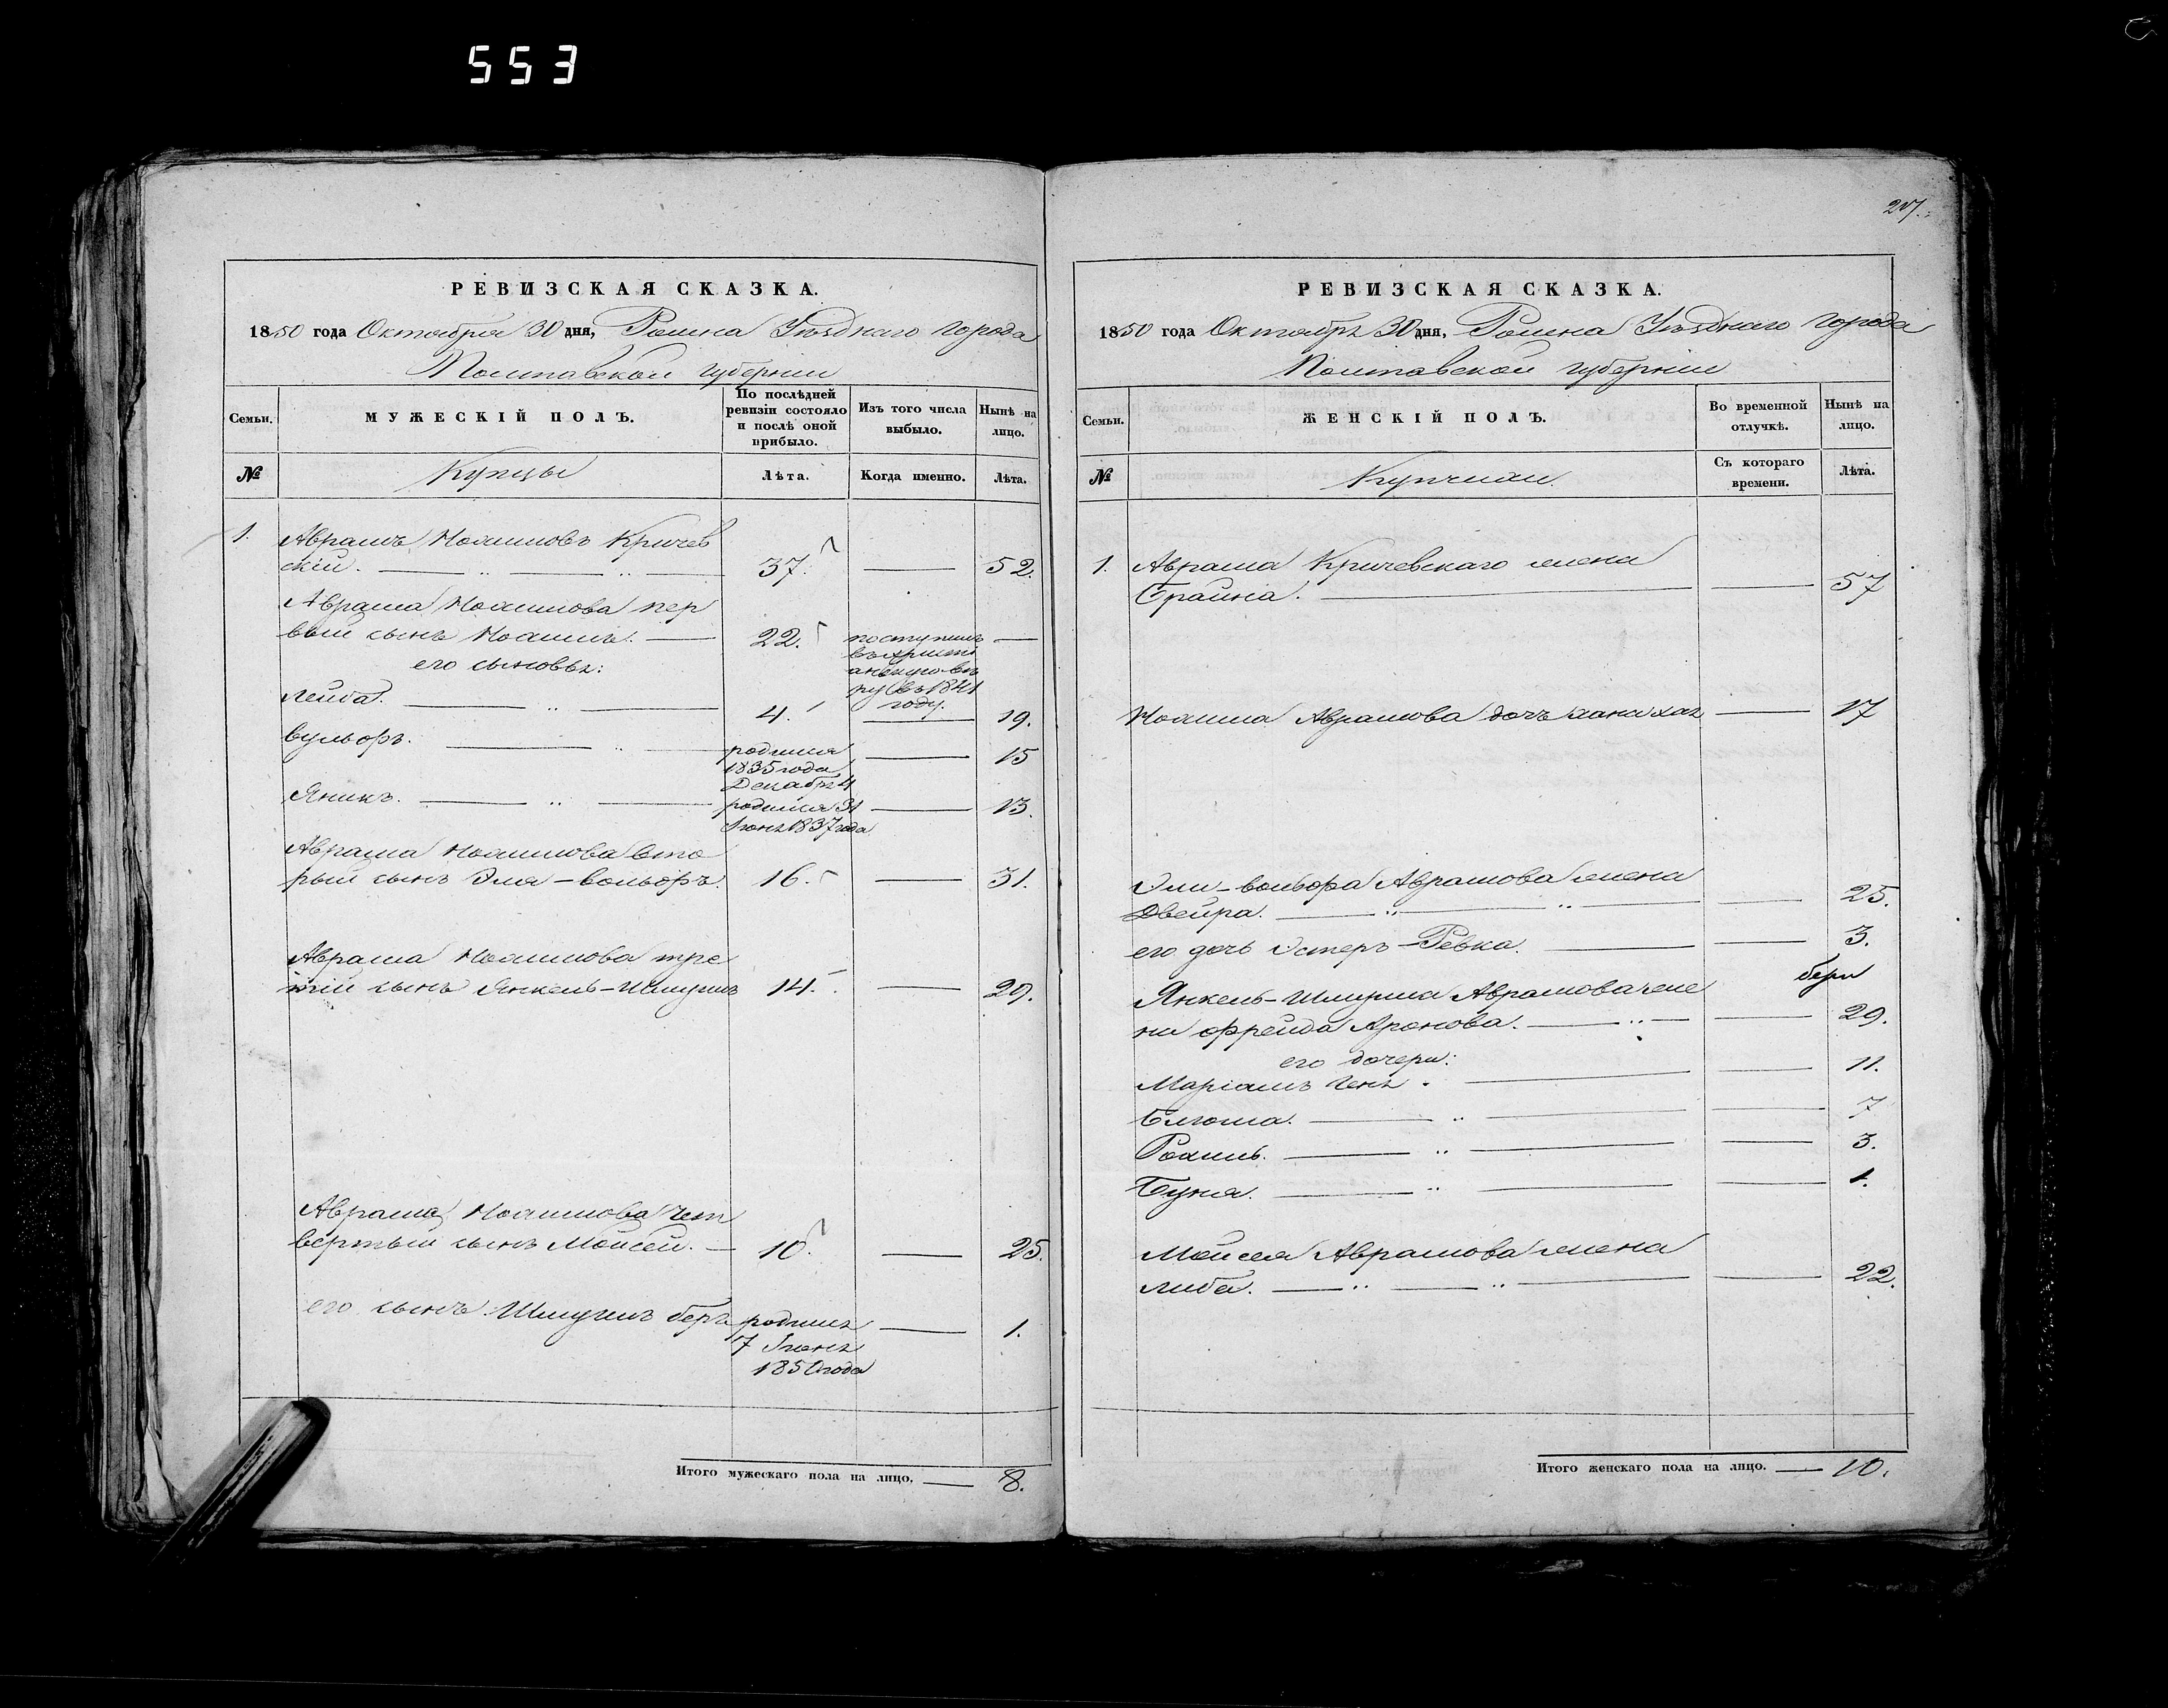 553
207.
РЕВИЗСКАЯ СКАЗКА.
1850 года Октября 30 дня, Ромна Уѣзднаго города
Полтавской губерніи
Семьи.
МУЖЕСКІЙ ПОЛЪ.
По послѣдней ревизіи состояло и послѣ оной прибыло.
Изъ того числа выбыло.
Нынѣ на лицо.
№
Купцы
Лѣта.
Когда именно.
Лѣта.
1. Аврамъ Кричев
скій. 37. 52.
Аврама пер
вый сынъ 22. поступилъ
въ христі
анскую вѣ
ру въ 1841
году.
его сыновья:
Лейба. 4. 19.
Вульфъ. родился
1835 года
Декабря 4 15
Яникъ. родился 31
Іюня 1837 года 13.
Аврама вто
рый сынъ Эля-вольфъ. 16. 31.
Аврама тре
тій сынъ Янкель-Шмуилъ 14. 29.
Аврама чет
вертый сынъ Мойсей. 10. 25.
его сынъ Шмуилъ беръ родился
7 Іюня
1850 года 1.
Итого мужескаго пола на лицо. 8.
РЕВИЗСКАЯ СКАЗКА.
1850 года Октября 30 дня, Ромна Уѣзднаго города
Полтавской губерніи
Семьи.
ЖЕНСКІЙ ПОЛЪ.
Во временной отлучкѣ.
Нынѣ на лицо.
№
Купчихи.
Съ котораго времени.
Лѣта.
1. Аврама Кричевскаго жена
Брайна. 57
Аврамова дочь 17
Эли-вольфа Аврамова жена
Двейра. 25.
его дочь Эстеръ-Ревка. 3.
Янкель-Шмуила Аврамова же
на Фрейда Аронова. 29.
его дочери:
Маріамъ 11.
Блюма. 7
3.
Буня. 1.
Мойсея Аврамова жена
Либа. 22.
Итого женскаго пола на лицо. 10.